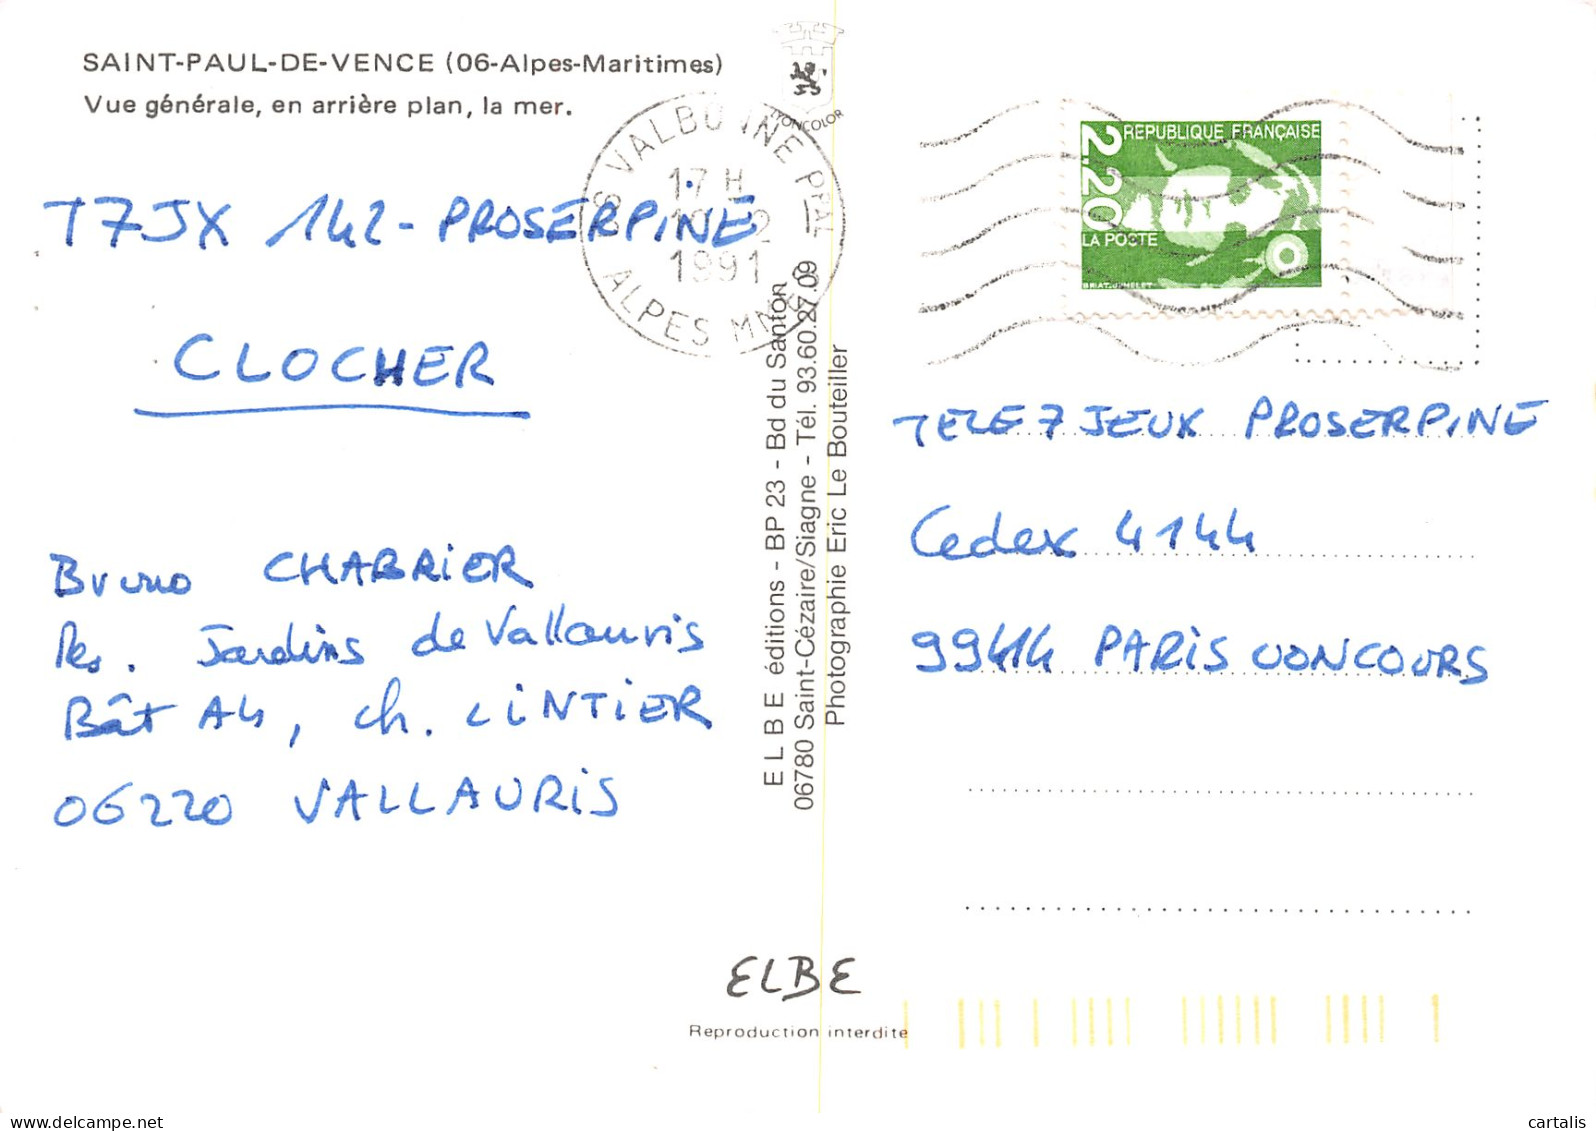 SAINT-PAUL-DE-VENCE (06-Alpes-Maritimes)
Vue générale, en arrière plan, la mer.
LYONCOLOR
06 VALBONNE PPAL
17 H
1991
ALPES MMES
REPUBLIQUE FRANÇAISE
2,20
LA POSTE
BRIAT-JUMELET
T7JX 142 - PROSERPINE
CLOCHER
Bruno CHABRIER
Res. Jardins de Vallauris
Bât A4, ch. LINTIER
06220 VALLAURIS
ELBE éditions - BP 23 - Bd du Santon
06780 Saint-Cézaire/Siagne - Tél. 93.60.27.09
Photographie Eric Le Bouteiller
TELE 7 JEUX PROSERPINE
Cedex 4144
99414 PARIS CONCOURS
ELBE
Reproduction interdite
cartalis